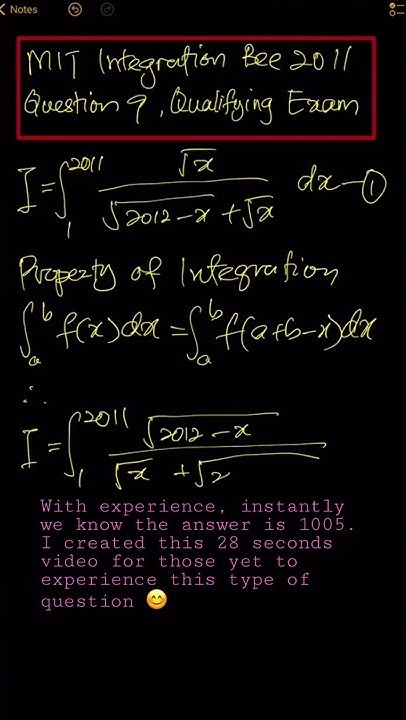 Notes
MIT Integration Bee 2011
Question 9, Qualifying Exam
I = ∫₁²⁰¹¹ √x / (√(2012-x) + √x) dx — ①
Property of Integration
∫ₐᵇ f(x)dx = ∫ₐᵇ f(a+b-x)dx
∴
I = ∫₁²⁰¹¹ √(2012-x) / (√x + √2
With experience, instantly
we know the answer is 1005.
I created this 28 seconds
video for those yet to
experience this type of
question 😊